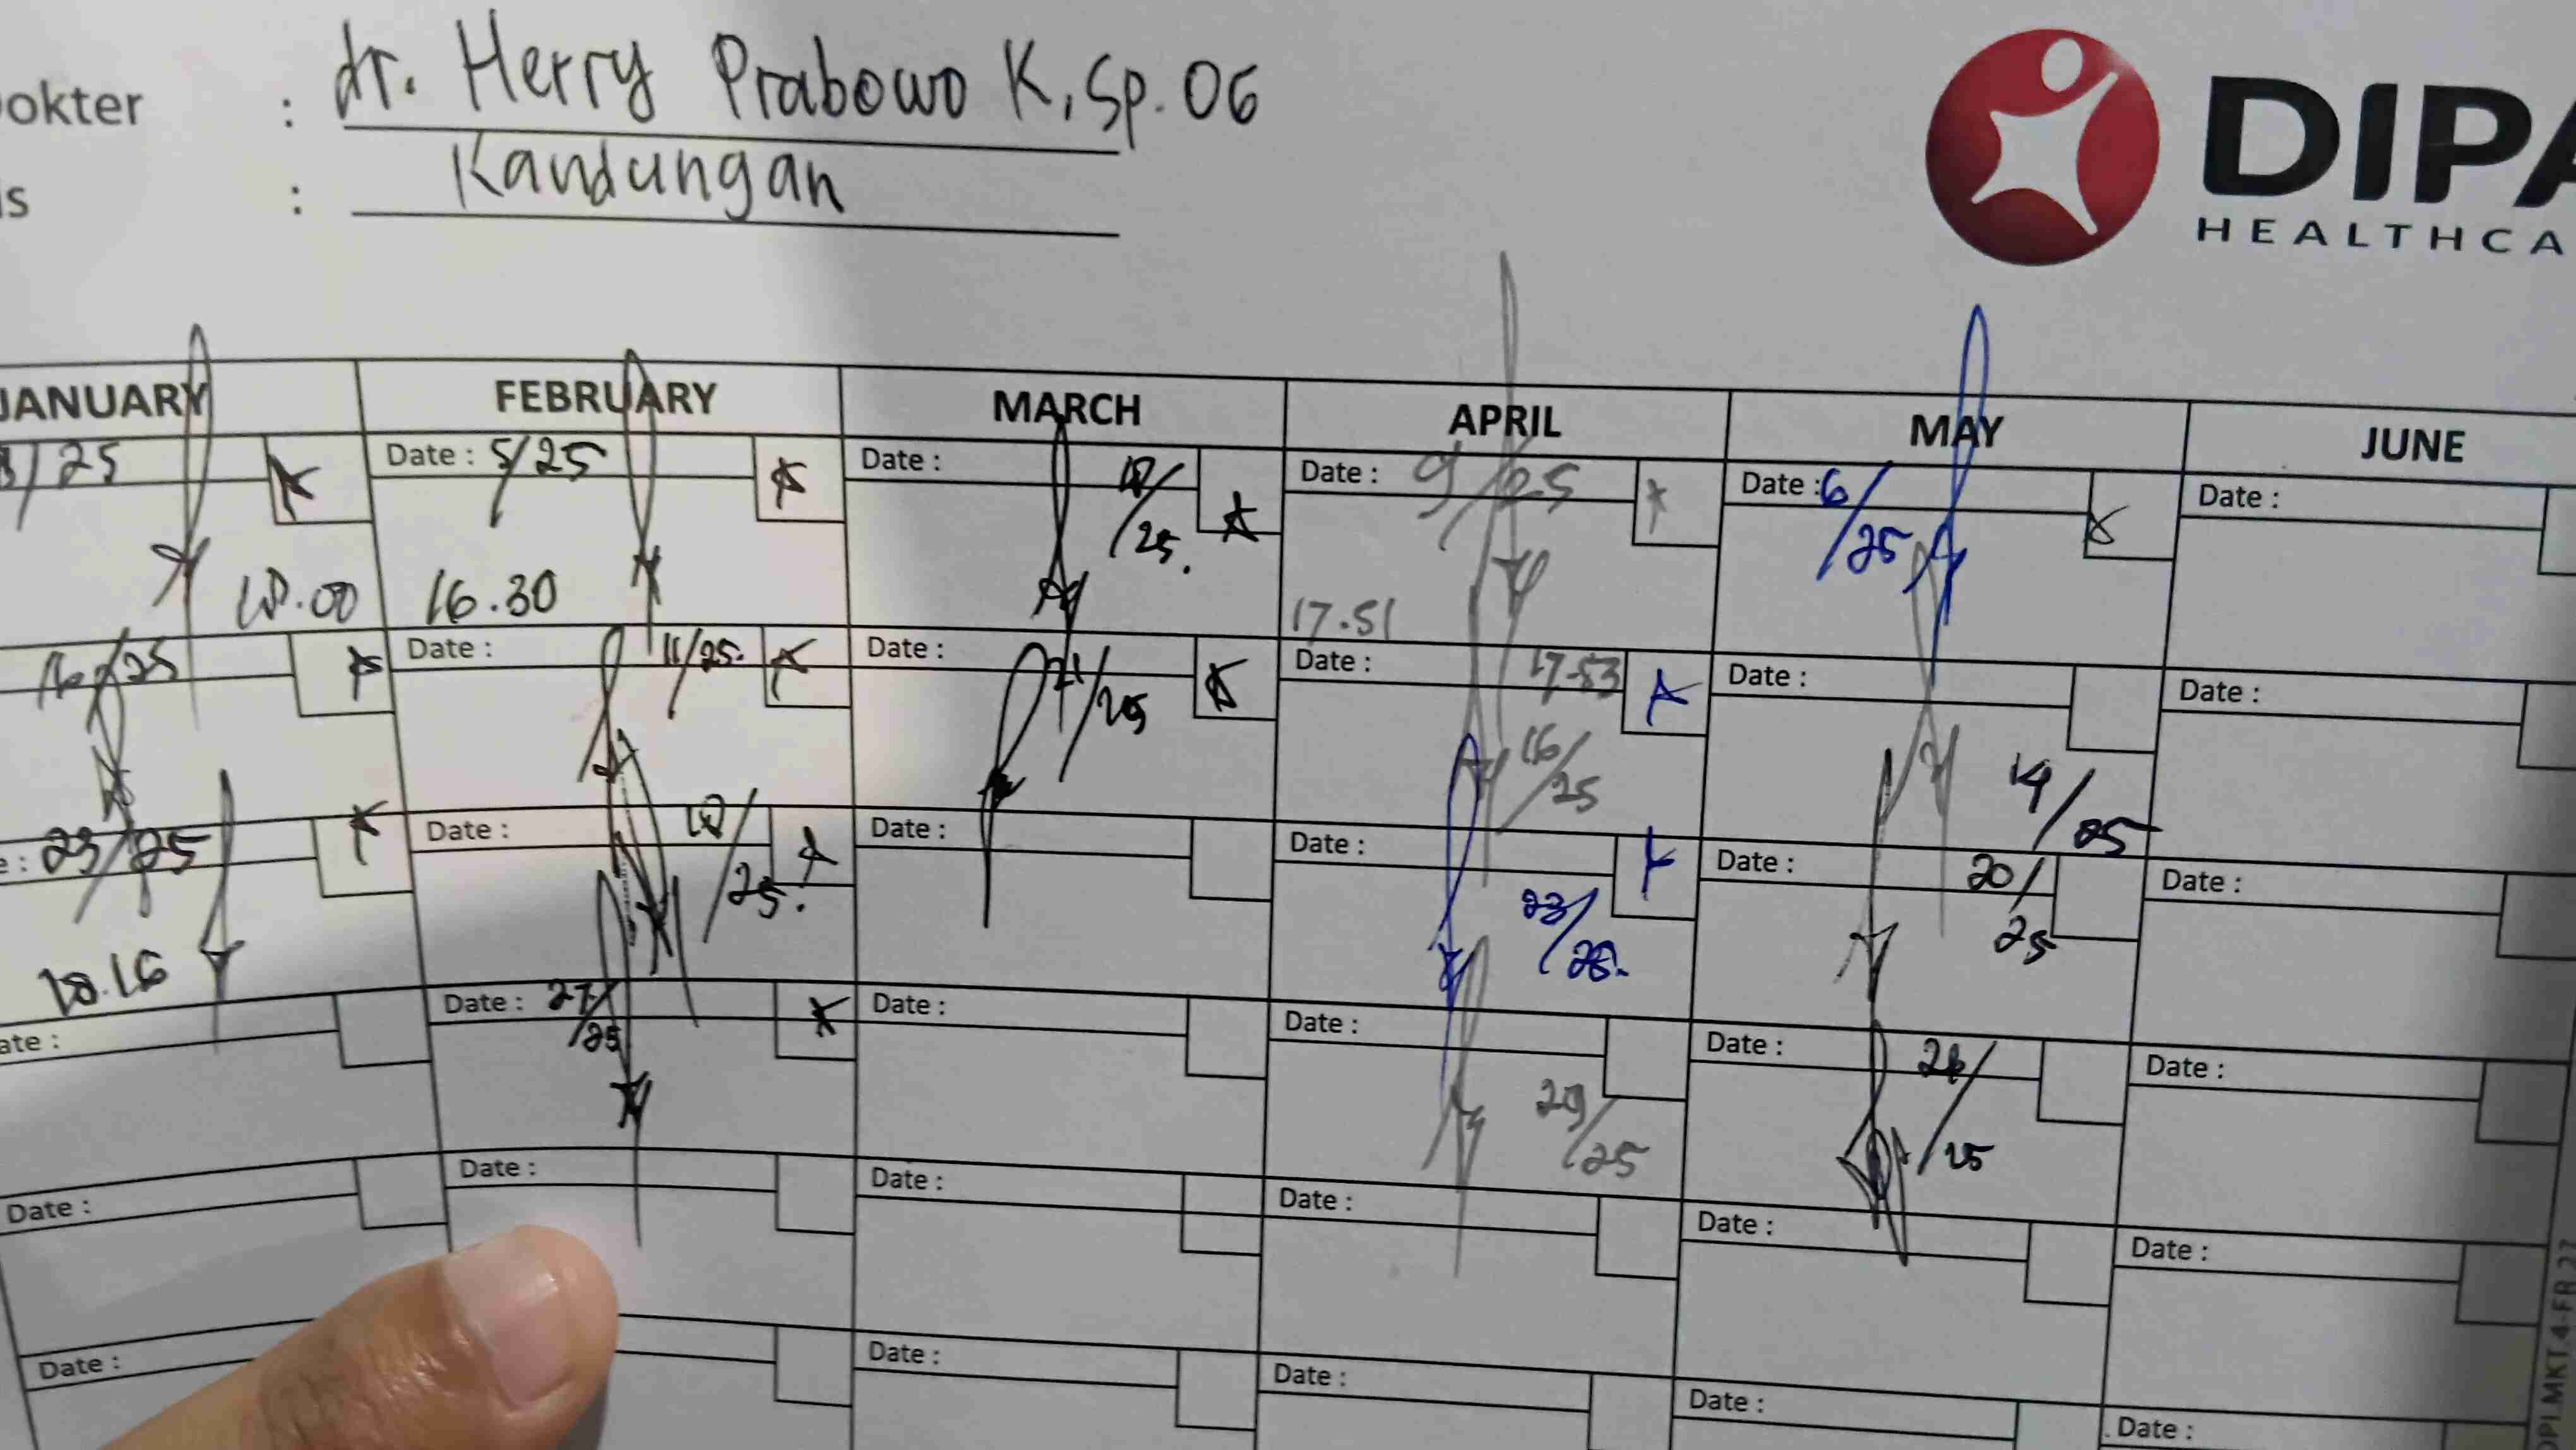 okter : dr. Herry Prabowo K, Sp. OG
is : Kandungan
DIPA
HEALTHCA
JANUARY FEBRUARY MARCH APRIL MAY JUNE
/25 Date : 5/25 Date : 18/25. Date : 9/25 Date : 6/25 Date :
18.00 16.30 17.51
16/25 Date : 11/25. Date : 21/25 Date : 17.53 16/25 Date : 14/25 Date :
e : 23/25 Date : 18/25. Date : Date : 23/25. Date : 20/25 Date :
18.16
ate : Date : 27/25 Date : Date : 29/25 Date : 26/25 Date :
Date : Date : Date : Date : Date : Date :
Date : Date : Date : Date : Date :